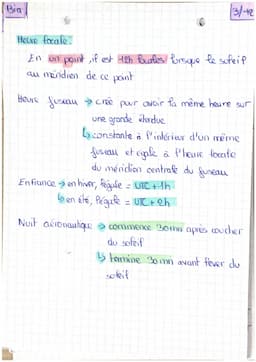 Bia
3/42
Heure locale:
En un point, il est 12h locales lorsque le soleil
au méridien de ce point
Heure fuseau → crée pour avoir la même heure sur
une grande étendue
↳ constante à l'intérieur d'un même
fuseau et égale à l'heure locale
du méridien centrale du fuseau
En france → en hiver, légale = UTC + 1h
↳ en été, légale = UTC + 2h
Nuit aéronautique → commence 30mn après coucher
du soleil
↳ termine 30mn avant lever du
soleil